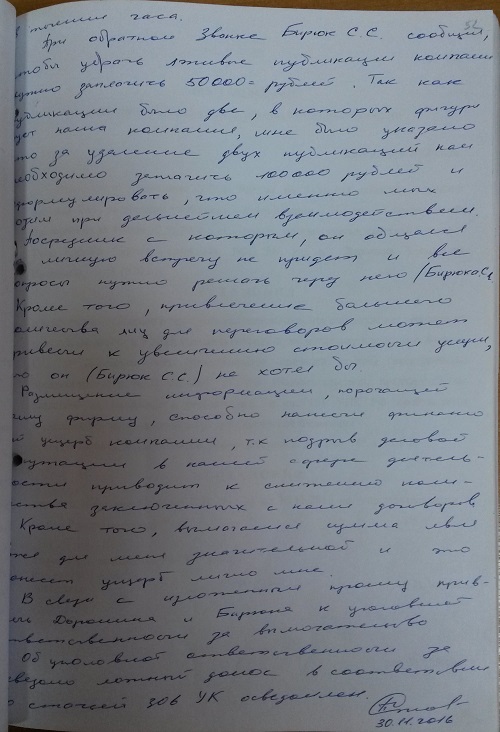 в течении часа. 52
При обратном звонке Бирюк С.С. сообщил,
чтобы убрать лживые публикации компании
нужно заплатить 50000= рублей. Так как
публикации было две, в которых фигури
рует наша компания, мне было указано
что за удаление двух публикаций нам
необходимо заплатить 100000 рублей и
сформулировать, что именно мы
хотим при дальнейшем взаимодействии.
Посредник с которым, он общается
на личную встречу не придет и все
вопросы нужно решать через него (Бирюка С.С.
Кроме того, привлечение большего
количества лиц для переговоров может
привести к увеличению стоимости услуги,
чего он (Бирюк С.С.) не хотел бы.
Размещение информации, порочащей
нашу фирму, способно нанести финансо
вый ущерб компании, т.к подрыв деловой
репутации в нашей сфере деятель-
ности приводит к снижению коли-
чества заключенных с нами договоров
Кроме того, вымогаемая сумма явля
ется для меня значительной и это
нанесет ущерб лично мне.
В связи с изложенным прошу прив-
лечь Доронина и Бирюка к уголовной
ответственности за вымогательство
Об уголовной ответственности за
заведомо ложный донос в соответствии
со статьей 306 УК осведомлен.
30.11.2016